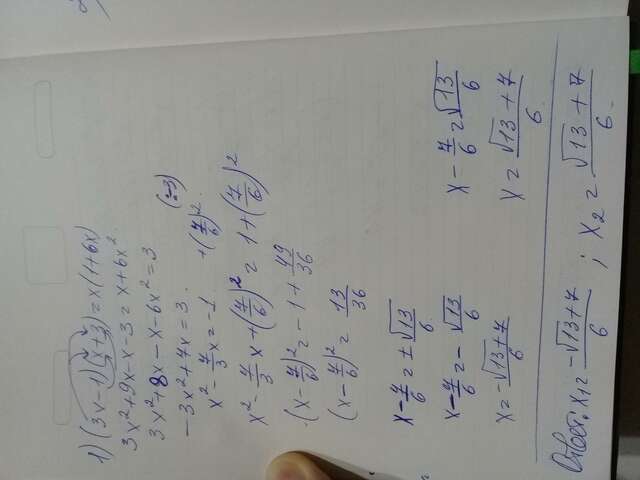 1) (3x-1)(x+3) = x(1+6x)
3x²+9x-x-3 = x+6x².
3x²+8x-x-6x² = 3
-3x²+7x = 3. (:-3)
x² - 7/3 x = -1. +(7/6)².
x² - 7/3 x + (7/6)² = 1 + (7/6)²
(x - 7/6)² = -1 + 49/36
(x - 7/6)² = 13/36
x - 7/6 = ± √13/6
x - 7/6 = - √13/6
x = -√13+7/6
x - 7/6 = √13/6
x = √13+7/6.
Ответ: x₁ = -√13+7/6 ; x₂ = √13+7/6.